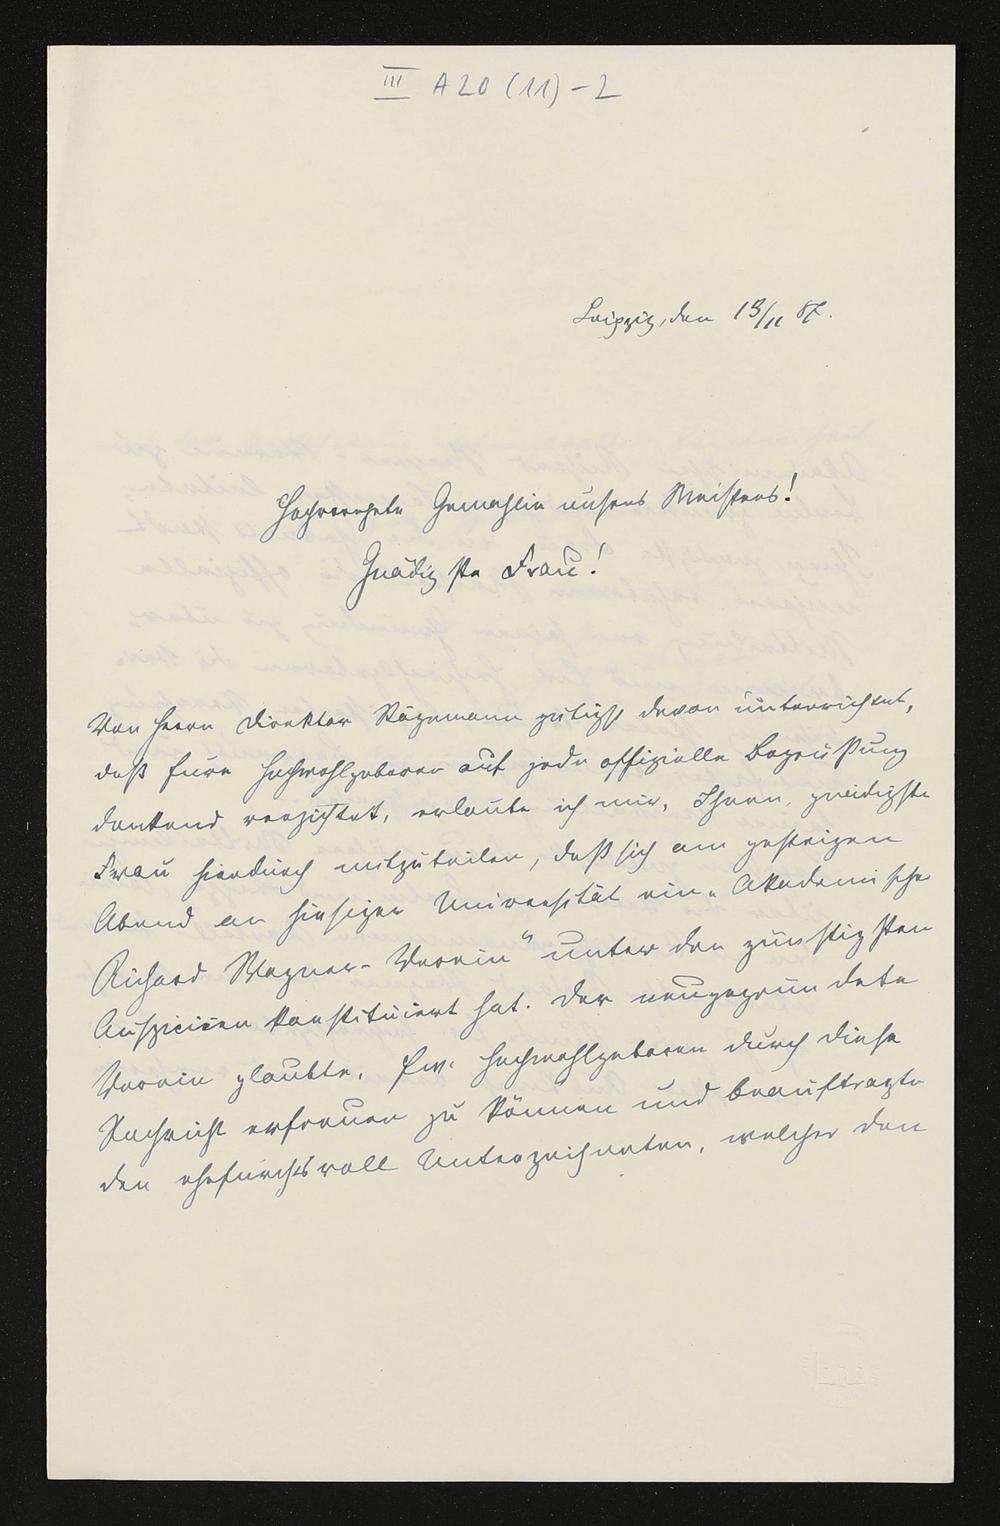 III A20 (11)-2
Leipzig, den 13/11 87.
Hochverehrte Gemahlin unsers Meisters!
Gnädigste Frau!
Von Herrn Direktor Stägemann gütigst davon unterrichtet,
daß Eure Hochwohlgeboren auf jede offizielle Begrüßung
dankend verzichtet, erlaube ich mir, Ihnen, gnädigste
Frau hierdurch mitzuteilen, daß sich am gestrigen
Abend an hiesiger Universität ein „Akademischer
Richard Wagner-Verein“ unter den günstigsten
Auspicien konstituiert hat. Der neugegründete
Verein glaubte, Ew. Hochwohlgeboren durch diese
Nachricht erfreuen zu können und beauftragte
den ehrfurchtsvoll Unterzeichneten, welcher den